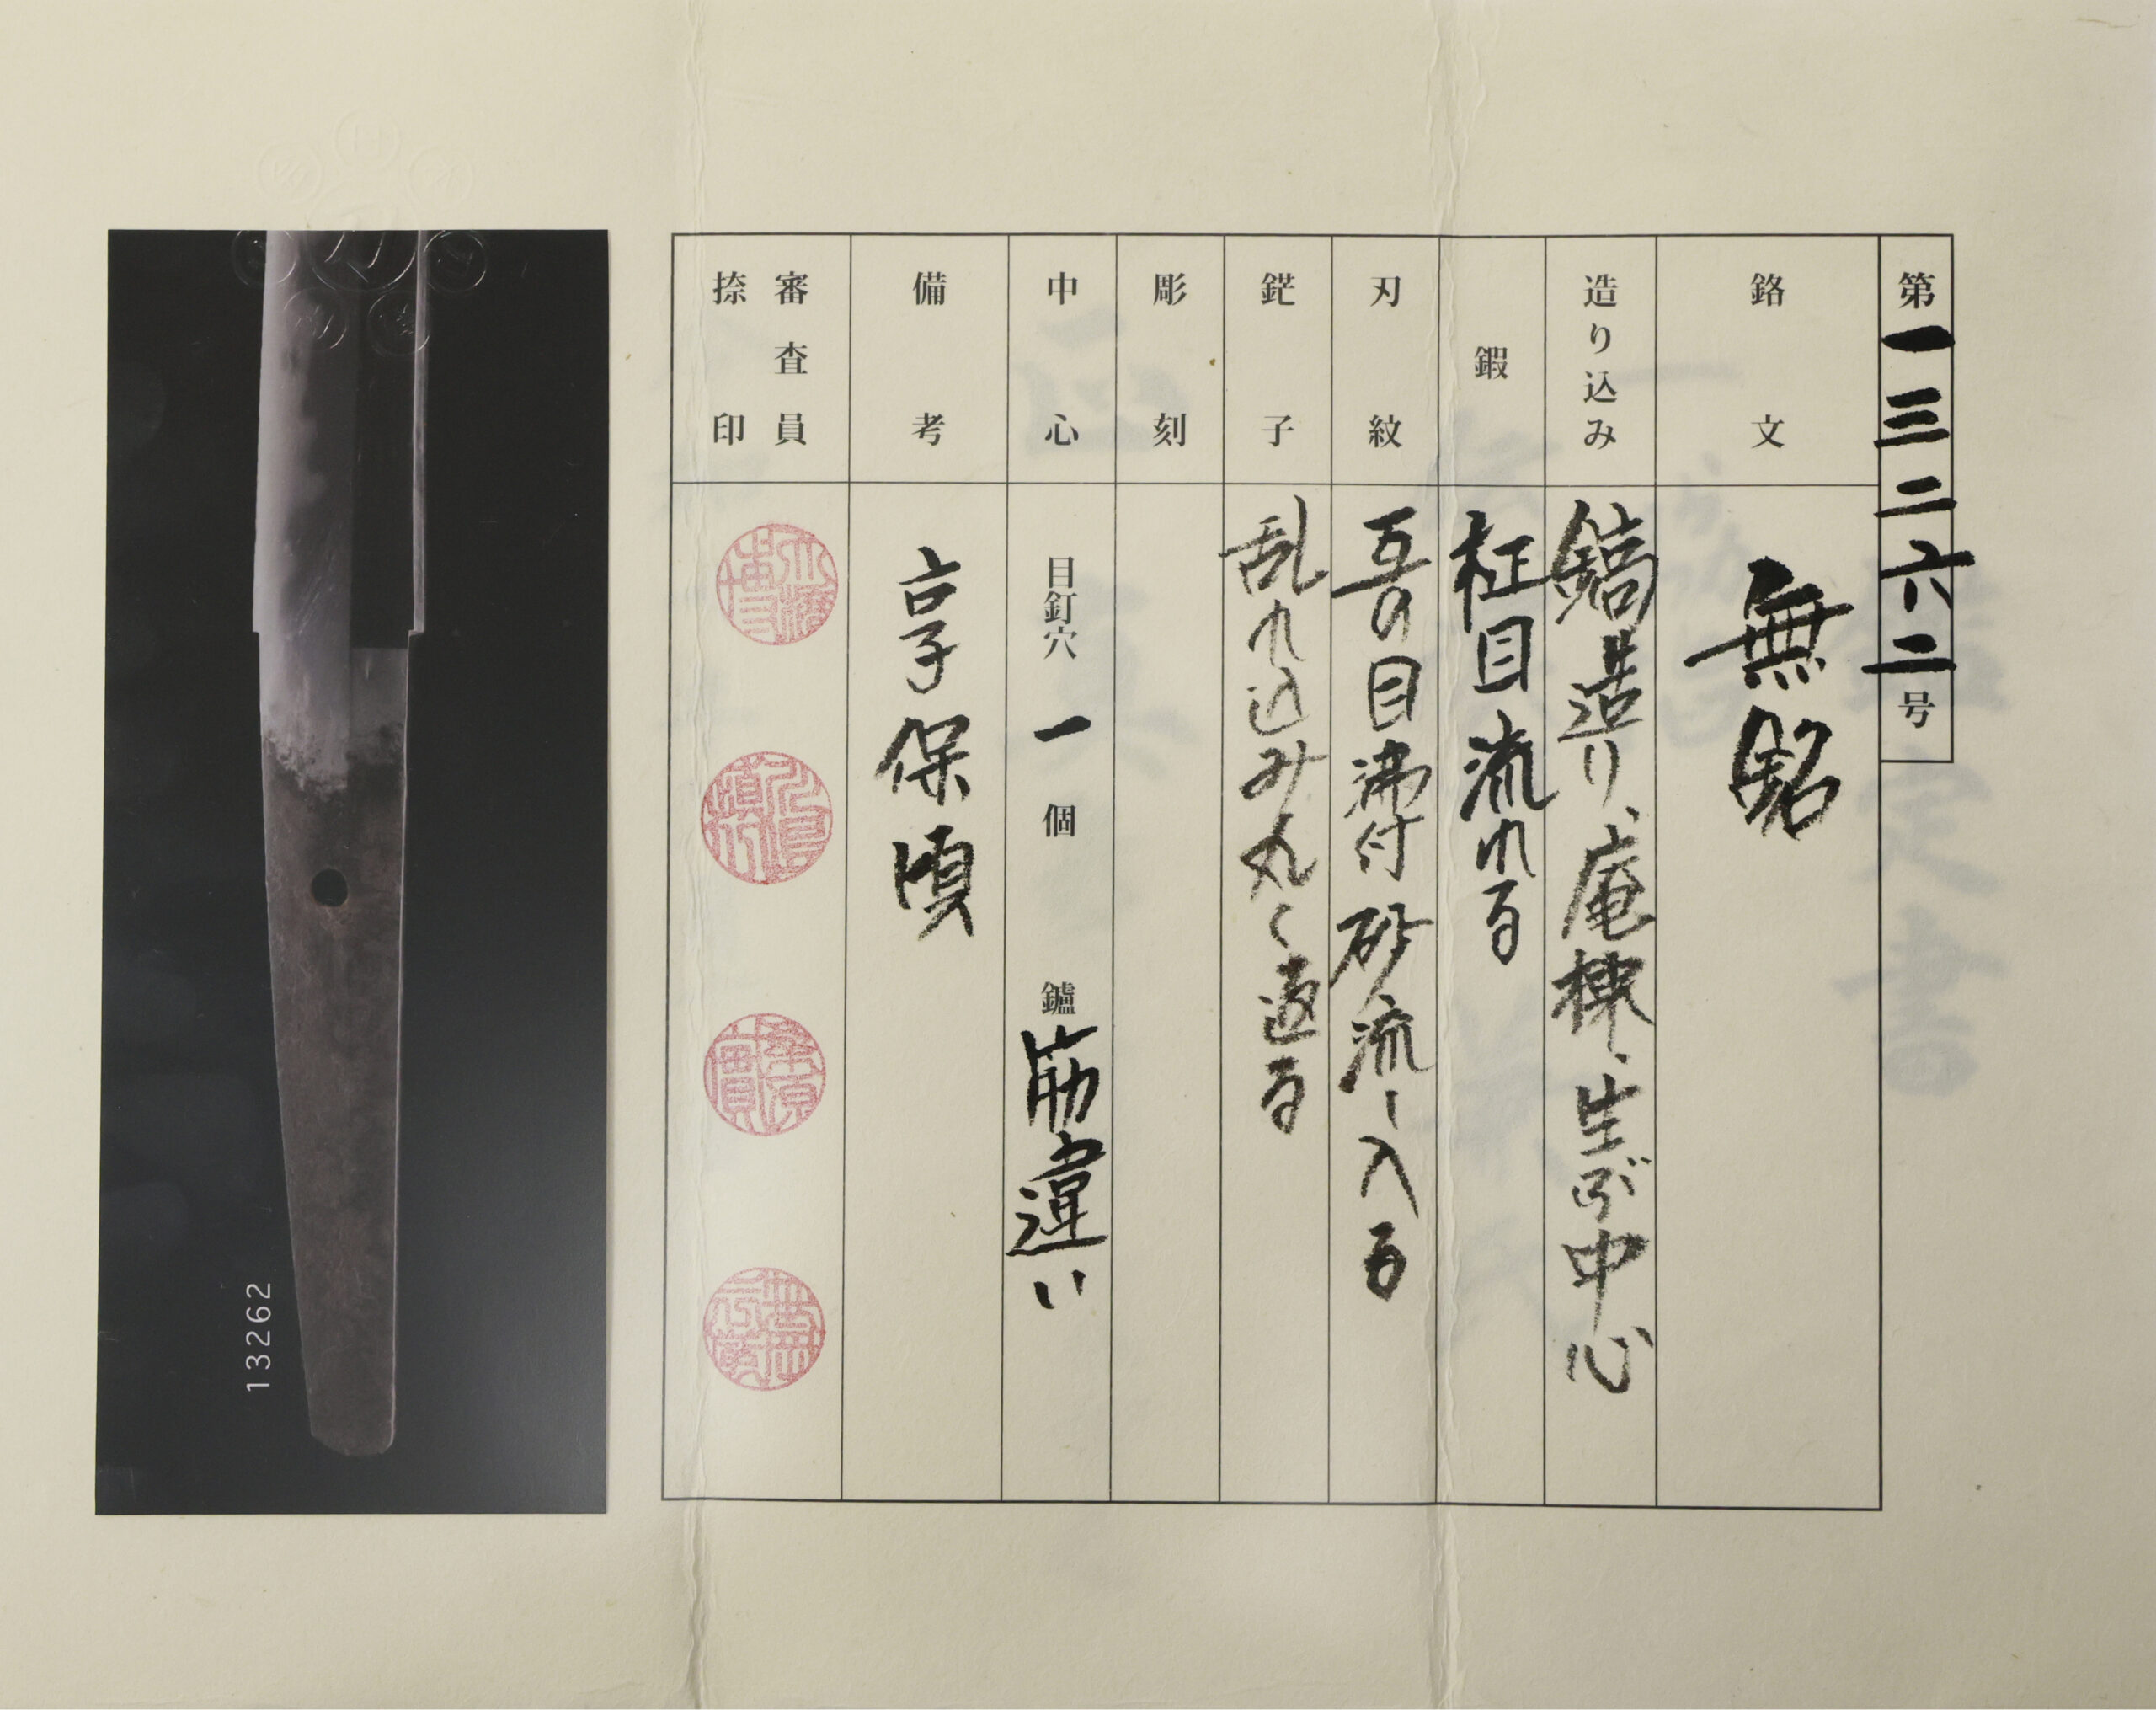 第一三二六二号
銘文
無銘
造り込み
鎬造り、庵棟、生ぶ中心
鍜
柾目流れる
刃紋
互の目沸付砂流し入る
鋩子
乱れ込み丸く返る
彫刻
中心
目釘穴 一 個 鑢 筋違い
備考
享保頃
審査員
捺印
13262